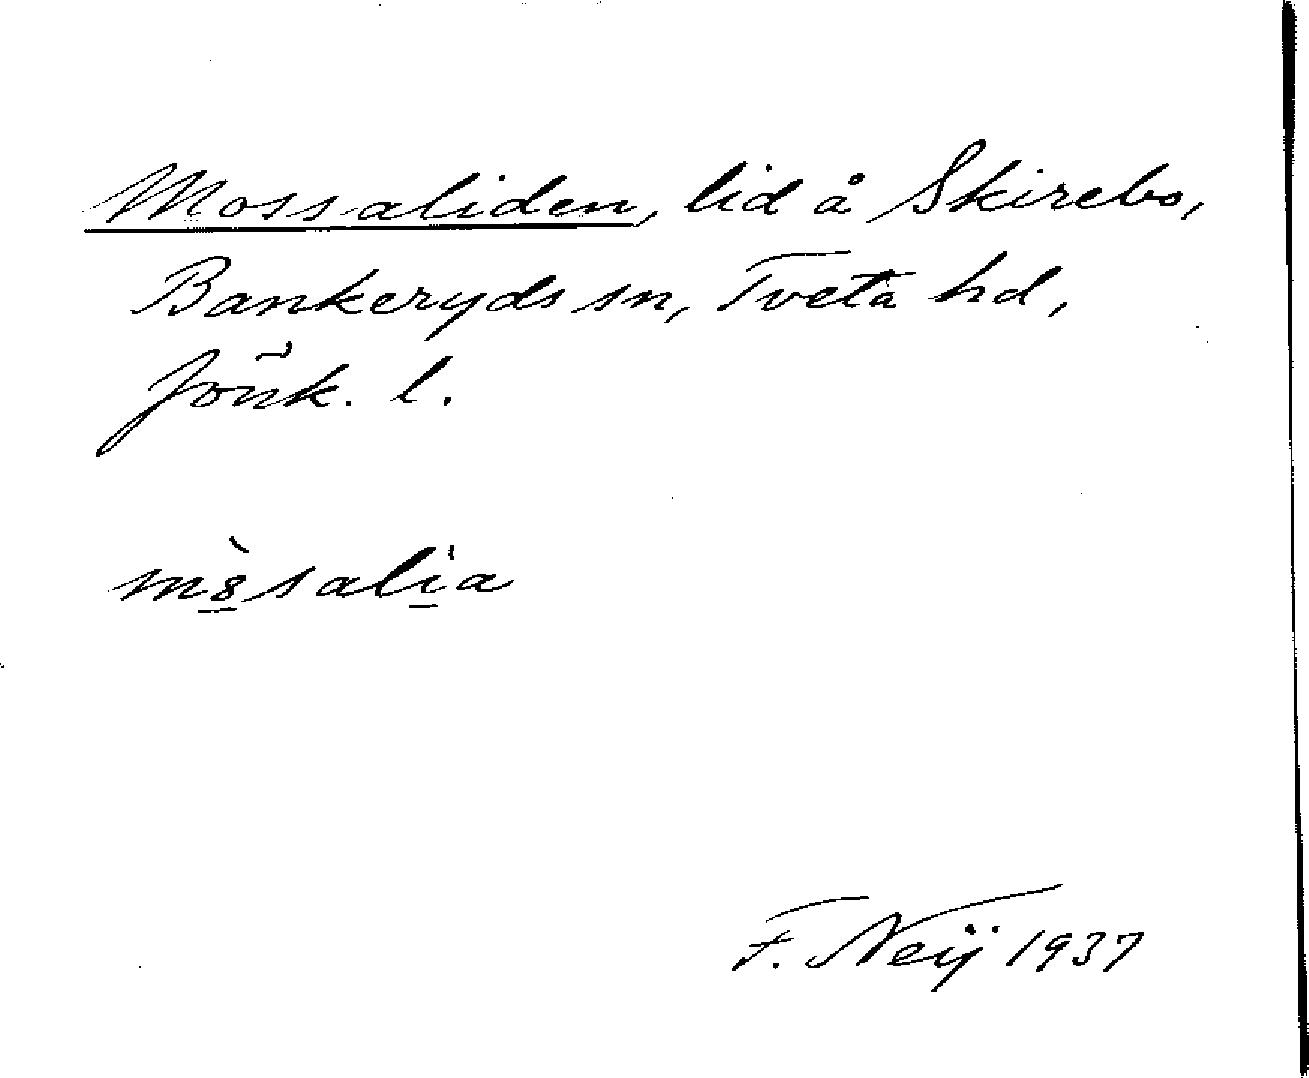 Mossaliden, lid å Skirebo,
Bankeryds sn, Tveta hd,
Jönk. l.
m8̲̀sali̲a
F. Neij 1937